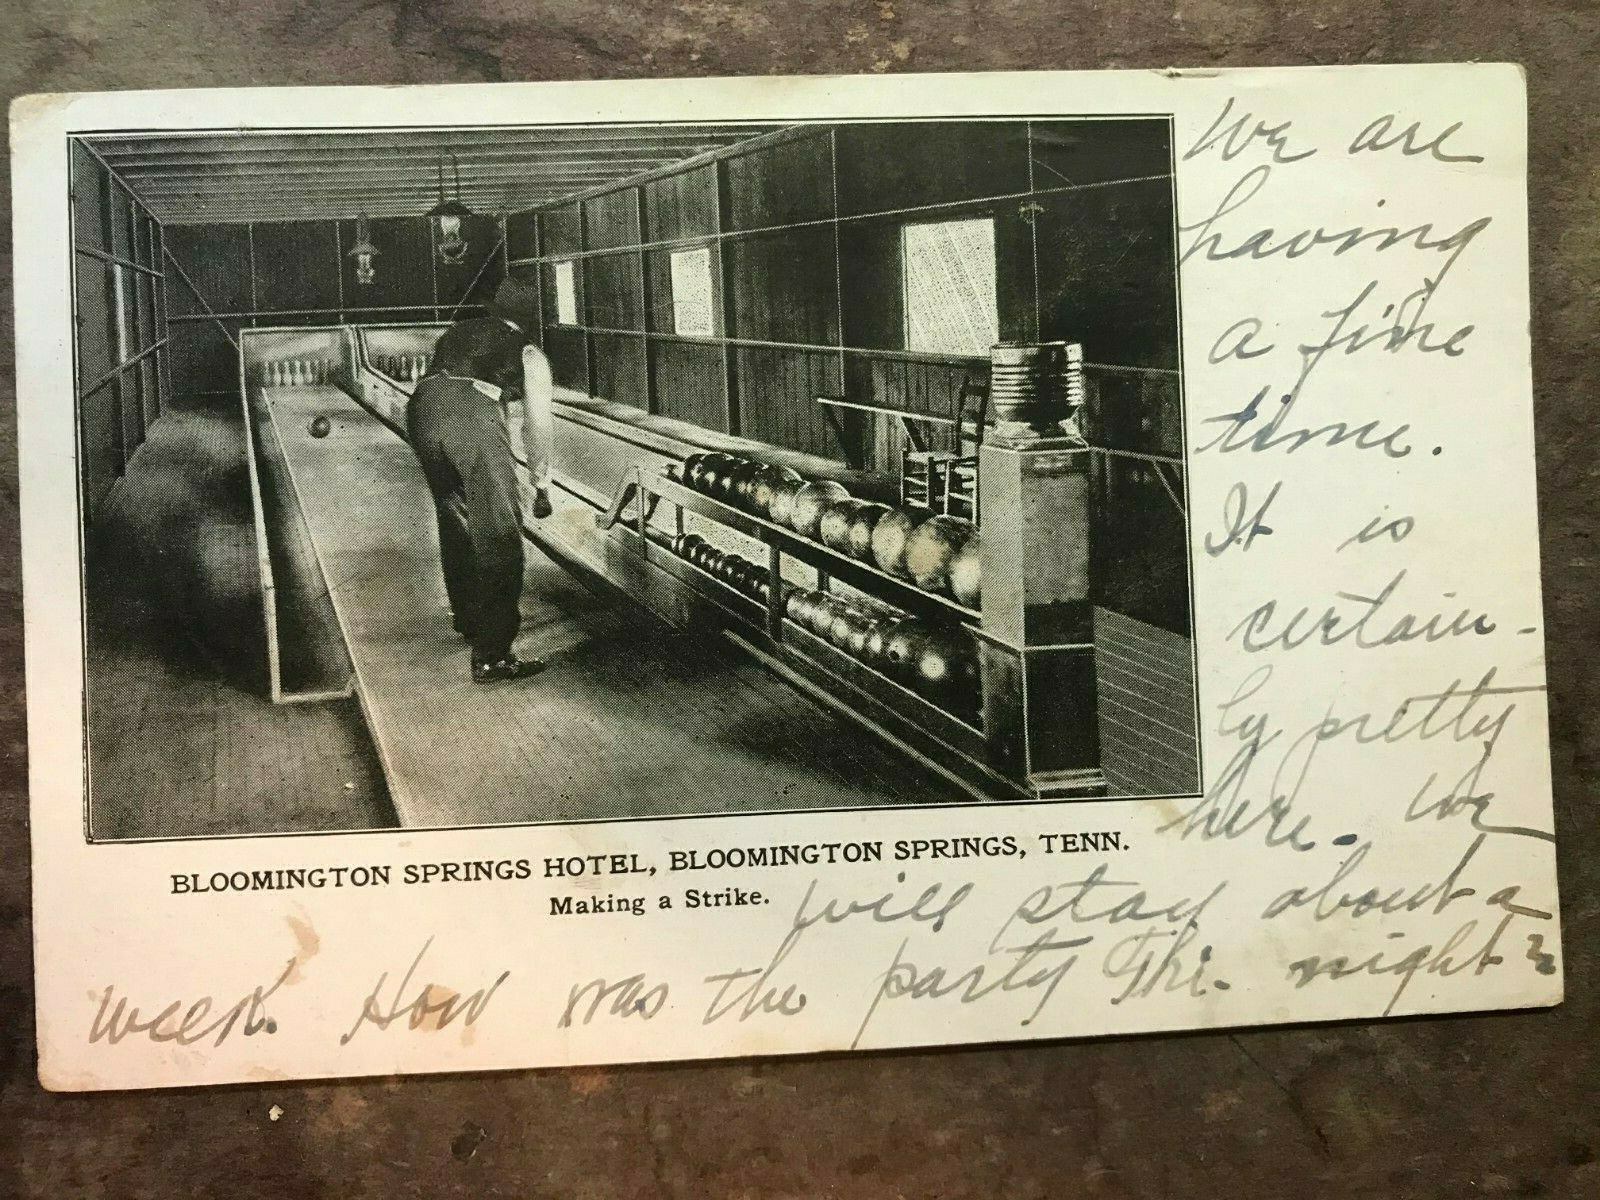 We are
having
a fine
time.
It is
certain-
ly pretty
here. We
will stay about a
week. How was the party Thi. night?
BLOOMINGTON SPRINGS HOTEL, BLOOMINGTON SPRINGS, TENN.
Making a Strike.